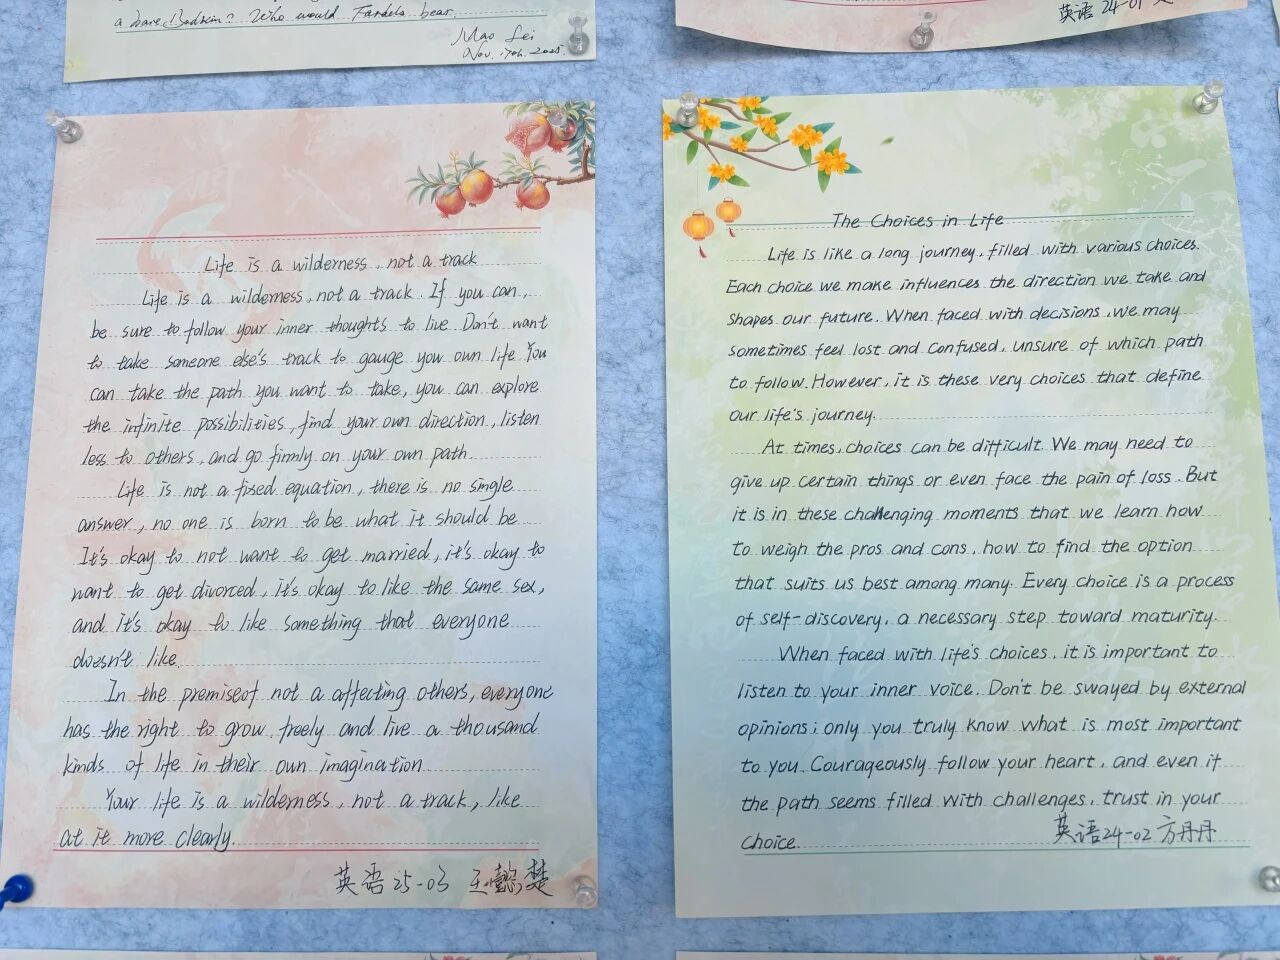 a bare Bodkin? Who would Fardels bear.
Mao Lei
Nov. 17th. 2025.
英语 24-01
Life is a wilderness, not a track
Life is a wilderness, not a track. If you can,
be sure to follow your inner thoughts to live. Don't want
to take someone else's track to gauge your own life. You
can take the path you want to take, you can explore
the infinite possibilities, find your own direction, listen
less to others, and go firmly on your own path.
Life is not a fixed equation, there is no single
answer, no one is born to be what it should be.
It's okay to not want to get married, it's okay to
want to get divorced, it's okay to like the same sex,
and it's okay to like something that everyone
doesn't like.
In the premiseof not a affecting others, everyone
has the right to grow freely and live a thousand
kinds of life in their own imagination.
Your life is a wilderness, not a track, like
at it more clearly.
英语 25-03 王懿楚
The Choices in Life
Life is like a long journey, filled with various choices.
Each choice we make influences the direction we take and
shapes our future. When faced with decisions, we may
sometimes feel lost and confused, unsure of which path
to follow. However, it is these very choices that define
our life's journey.
At times, choices can be difficult. We may need to
give up certain things or even face the pain of loss. But
it is in these challenging moments that we learn how
to weigh the pros and cons, how to find the option
that suits us best among many. Every choice is a process
of self-discovery, a necessary step toward maturity.
When faced with life's choices, it is important to
listen to your inner voice. Don't be swayed by external
opinions; only you truly know what is most important
to you. Courageously follow your heart, and even if
the path seems filled with challenges, trust in your
choice.
英语24-02 方丹丹